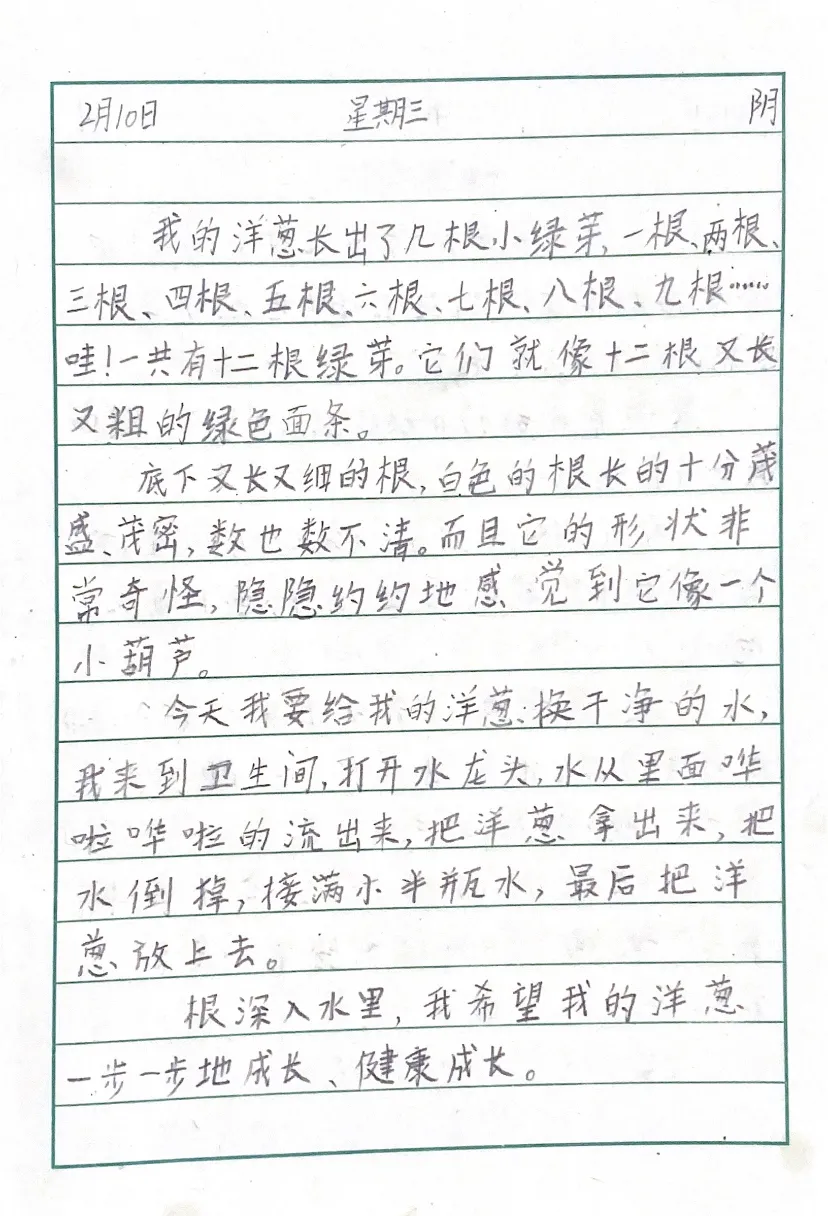 2月10日 星期三 阴
我的洋葱长出了几根小绿芽,一根、两根、
三根、四根、五根、六根、七根、八根、九根……
哇!一共有十二根绿芽。它们就像十二根又长
又粗的绿色面条。
底下又长又细的根,白色的根长的十分茂
盛、茂密,数也数不清。而且它的形状非
常奇怪,隐隐约约地感觉到它像一个
小葫芦。
今天我要给我的洋葱换干净的水,
我来到卫生间,打开水龙头,水从里面哗
啦哗啦的流出来,把洋葱拿出来,把
水倒掉,接满小半瓶水,最后把洋
葱放上去。
根深入水里,我希望我的洋葱
一步一步地成长、健康成长。